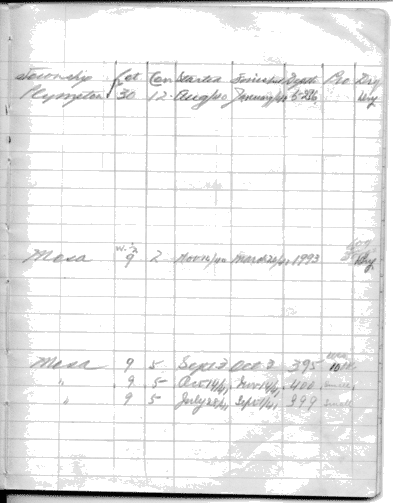 Township Lot Con Started Finished Depth Pro Dry
Plympton 30 12 Aug/40 January/41 5286 Dry
W. 1/2
Mosa 9 2 Nov14/40 March20/41 1993 Dry
Mosa 9 5 Sept 2 Oct 3 395 10
" 9 5 Oct14/41 Nov14/41 400 Small
" 9 5 July28/41 Sept1/41 399 Small